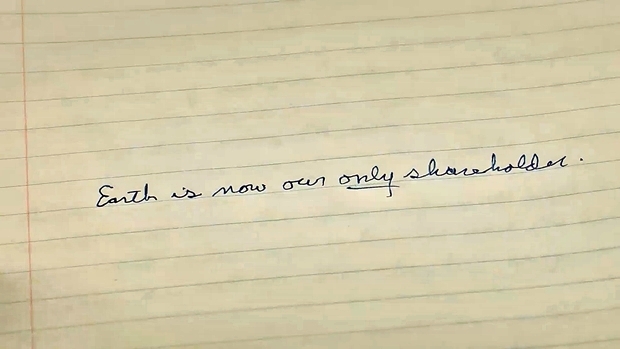 Earth is now our only shareholder.